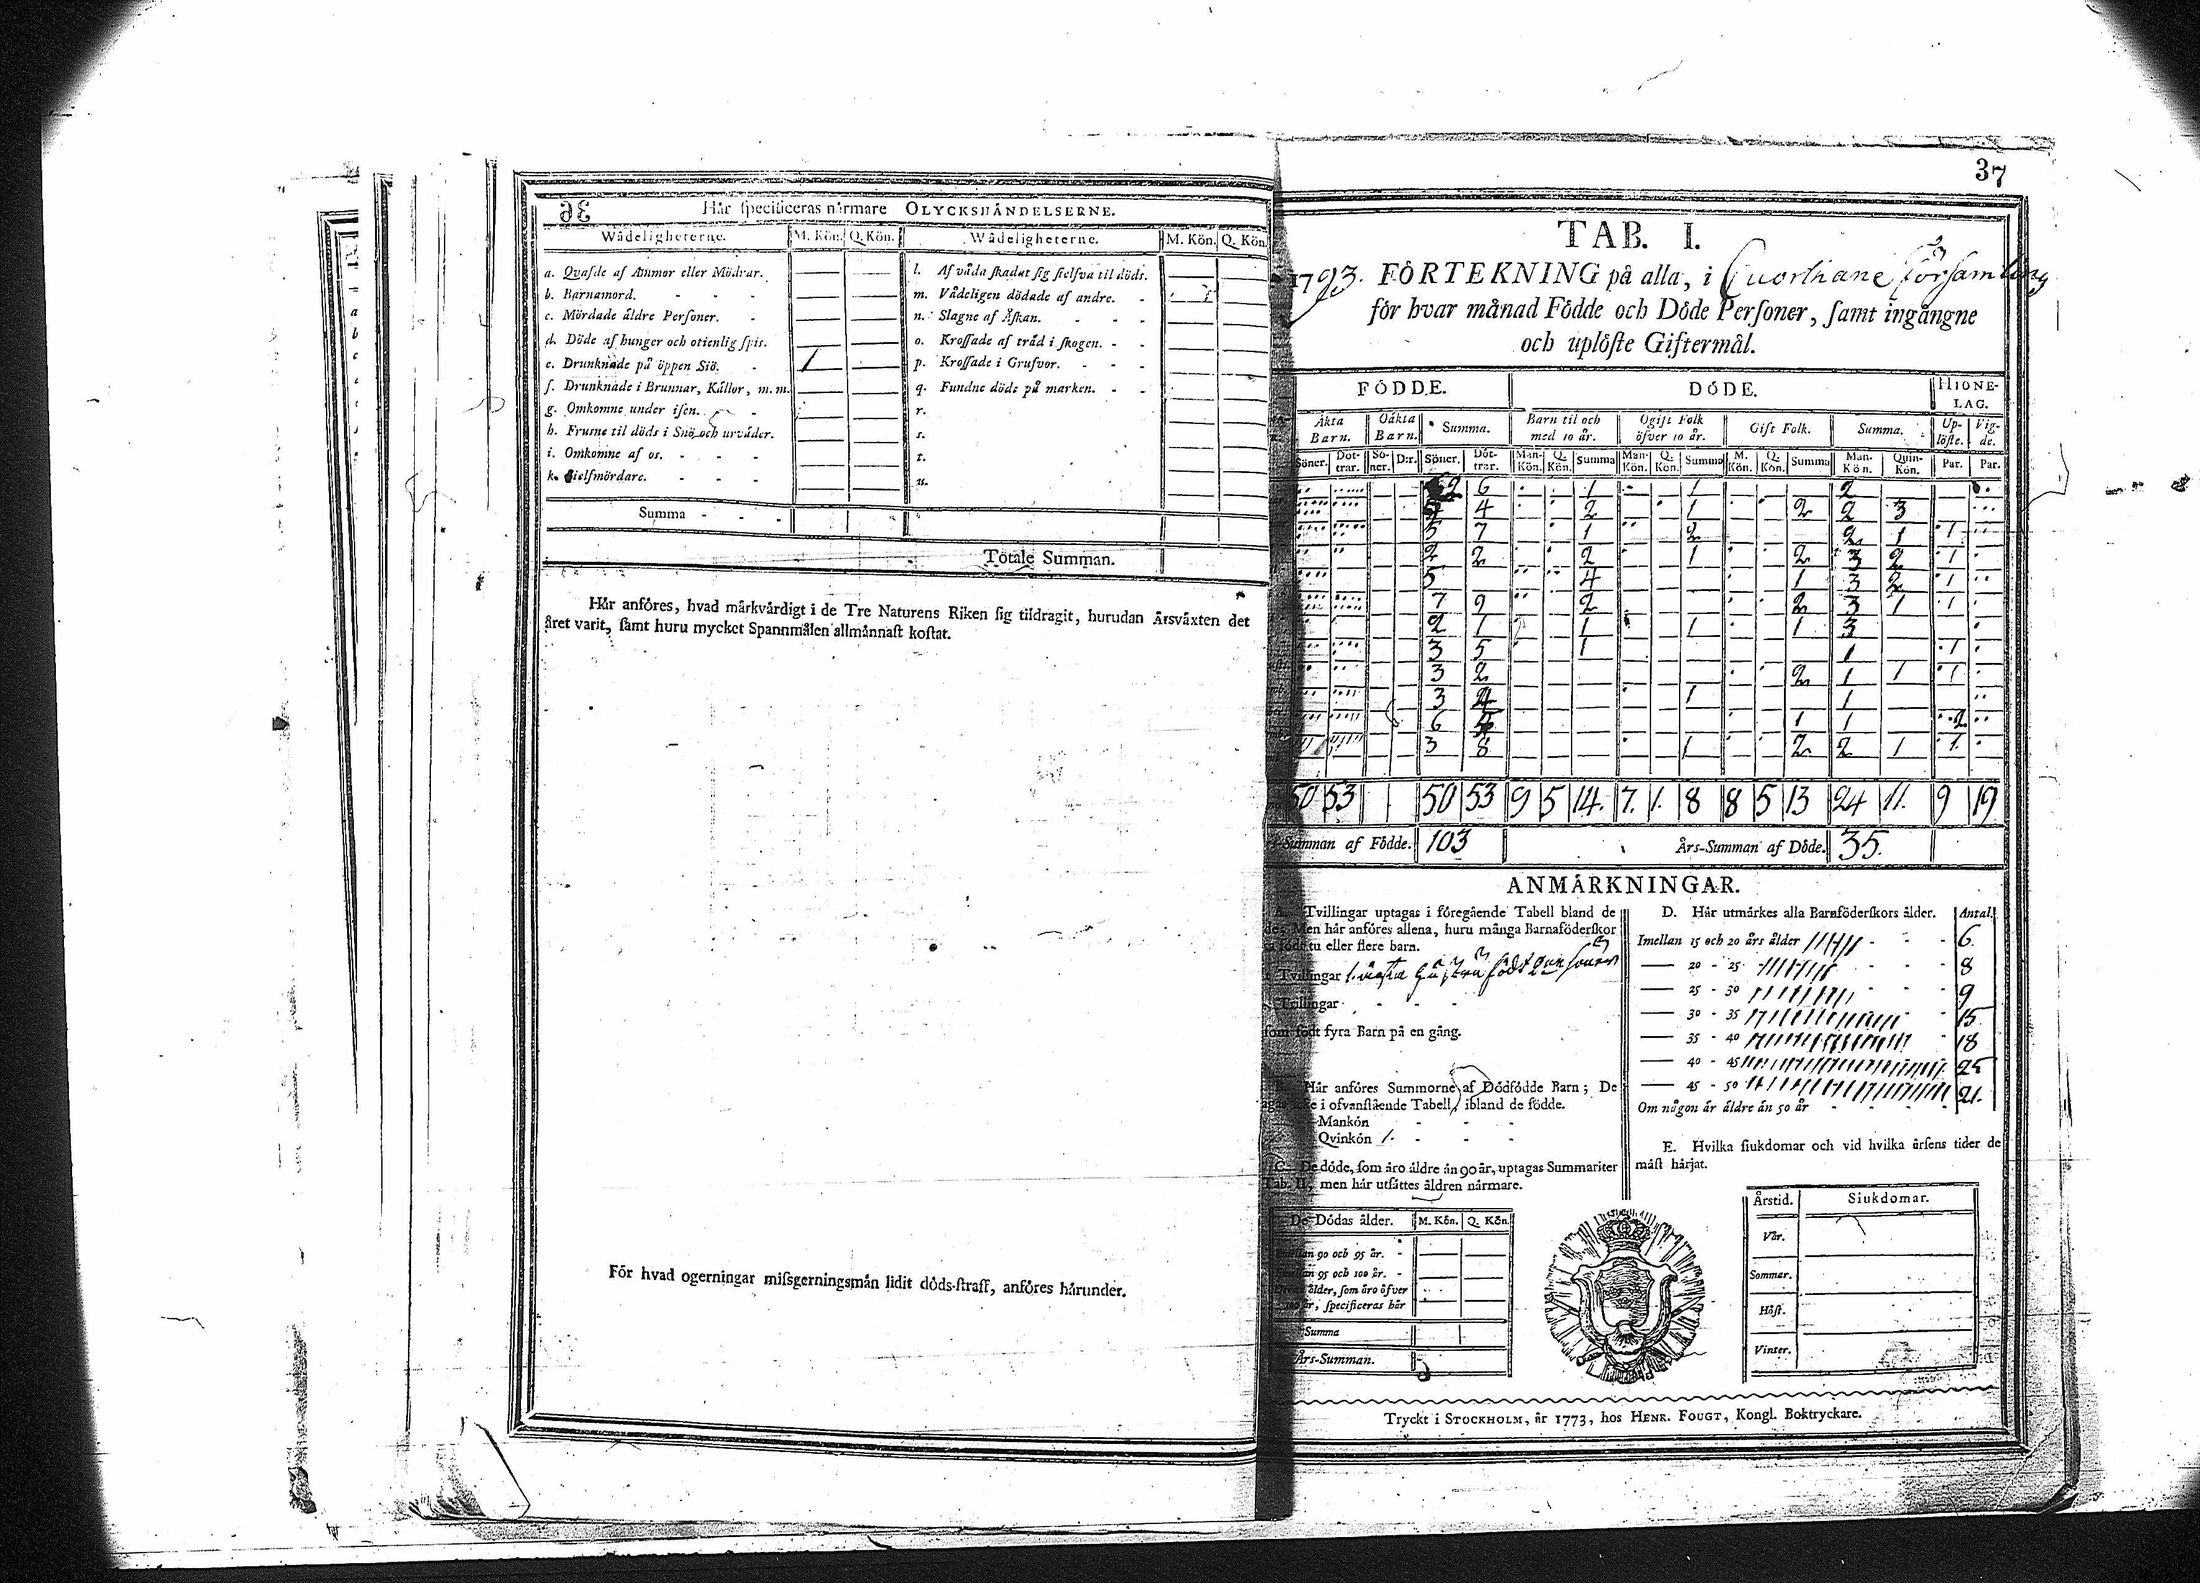 36 Här specificeras närmare OLYCKSHÄNDELSERNE.
Wådeligheterne. M. Kön. Q. Kön. Wådeligheterne. M. Kön. Q. Kön.
a. Qvafde af Ammor eller Mödrar. l. Af våda skadat sig sielfva til döds.
b. Barnamord. m. Vådeligen dödade af andre.
c. Mördade äldre Personer. n. Slagne af Åskan.
d. Döde af hunger och otienlig spis. o. Krossade af träd i skogen.
e. Drunknade på öppen Siö. 1 p. Krossade i Grufvor.
f. Drunknade i Brunnar, Källor, m. m. q. Fundne döde på marken.
g. Omkomne under isen. r.
h. Frusne til döds i Snö och urväder. s.
i. Omkomne af os. t.
k. Sielfmördare. u.
Summa
Totale Summan.
Här anföres, hvad märkvärdigt i de Tre Naturens Riken sig tildragit, hurudan Årsväxten det
året varit, samt huru mycket Spannmålen allmännast kostat.
För hvad ogerningar missgerningsmän lidit döds-straff, anföres härunder.
37
TAB. I.
1793. FÖRTEKNING på alla, i Quorhane Församling
för hvar månad Födde och Döde Personer, samt ingångne
och uplöste Giftermål.
FÖDDE. DÖDE. HIONE-
LAG.
Äkta Oäkta Summa. Barn til och Ogift Folk Gift Folk. Summa. Up- Vig-
Barn. Barn. med 10 år. öfver 10 år. löste. de.
Söner. Döt- Sö- D:r. Söner. Döt- Man- Q. Summa Man- Q. Summa M. Q. Summa Man- Quin- Par. Par.
trar. ner. trar. Kön. Kön. Kön. Kön. Kön. Kön. Kön. Kön.
2 6 1 1 2
4 2 1 2 2 3
5 7 1 2 2 1 1
2 2 2 1 2 3 2 1
5 4 1 3 2 1
7 9 2 2 3 1 1
2 1 1 1 1 3
3 5 1 1 1
3 2 2 1 1 1
3 4 1 1
6 5 1 1 2
3 8 1 2 2 1 1
50 53 50 53 9 5 14. 7. 1. 8 8 5 13 24 11. 9 19
Summan af Födde. 103 Års-Summan af Döde. 35.
ANMÄRKNINGAR.
Tvillingar uptagas i föregående Tabell bland de
Men här anföres allena, huru många Barnaföderskor
tu eller flere barn.
Tvillingar
Trillingar
som födt fyra Barn på en gång.
Här anföres Summorne af Dödfödde Barn; De
i ofvanstående Tabell, ibland de födde.
Mankön
Qvinkön 1.
C. De döde, som äro äldre än 90 år, uptagas Summariter
Tab. II, men här utsättes åldren närmare.
De Dödas ålder. M. Kön. Q. Kön.
90 och 95 år.
95 och 100 år.
ålder, som äro öfver
år, specificeras här
Summa
Års-Summan.
D. Här utmärkes alla Barnföderskors ålder. Antal.
Imellan 15 och 20 års ålder 6.
20 - 25 8
25 - 30 9
30 - 35 15
35 - 40 18
40 - 45 25
45 - 50 21.
Om någon är äldre än 50 år
E. Hvilka siukdomar och vid hvilka årsens tider de
mäst härjat.
Årstid. Siukdomar.
Vår.
Sommar.
Höst.
Vinter.
Tryckt i STOCKHOLM, år 1773, hos HENR. FOUGT, Kongl. Boktryckare.